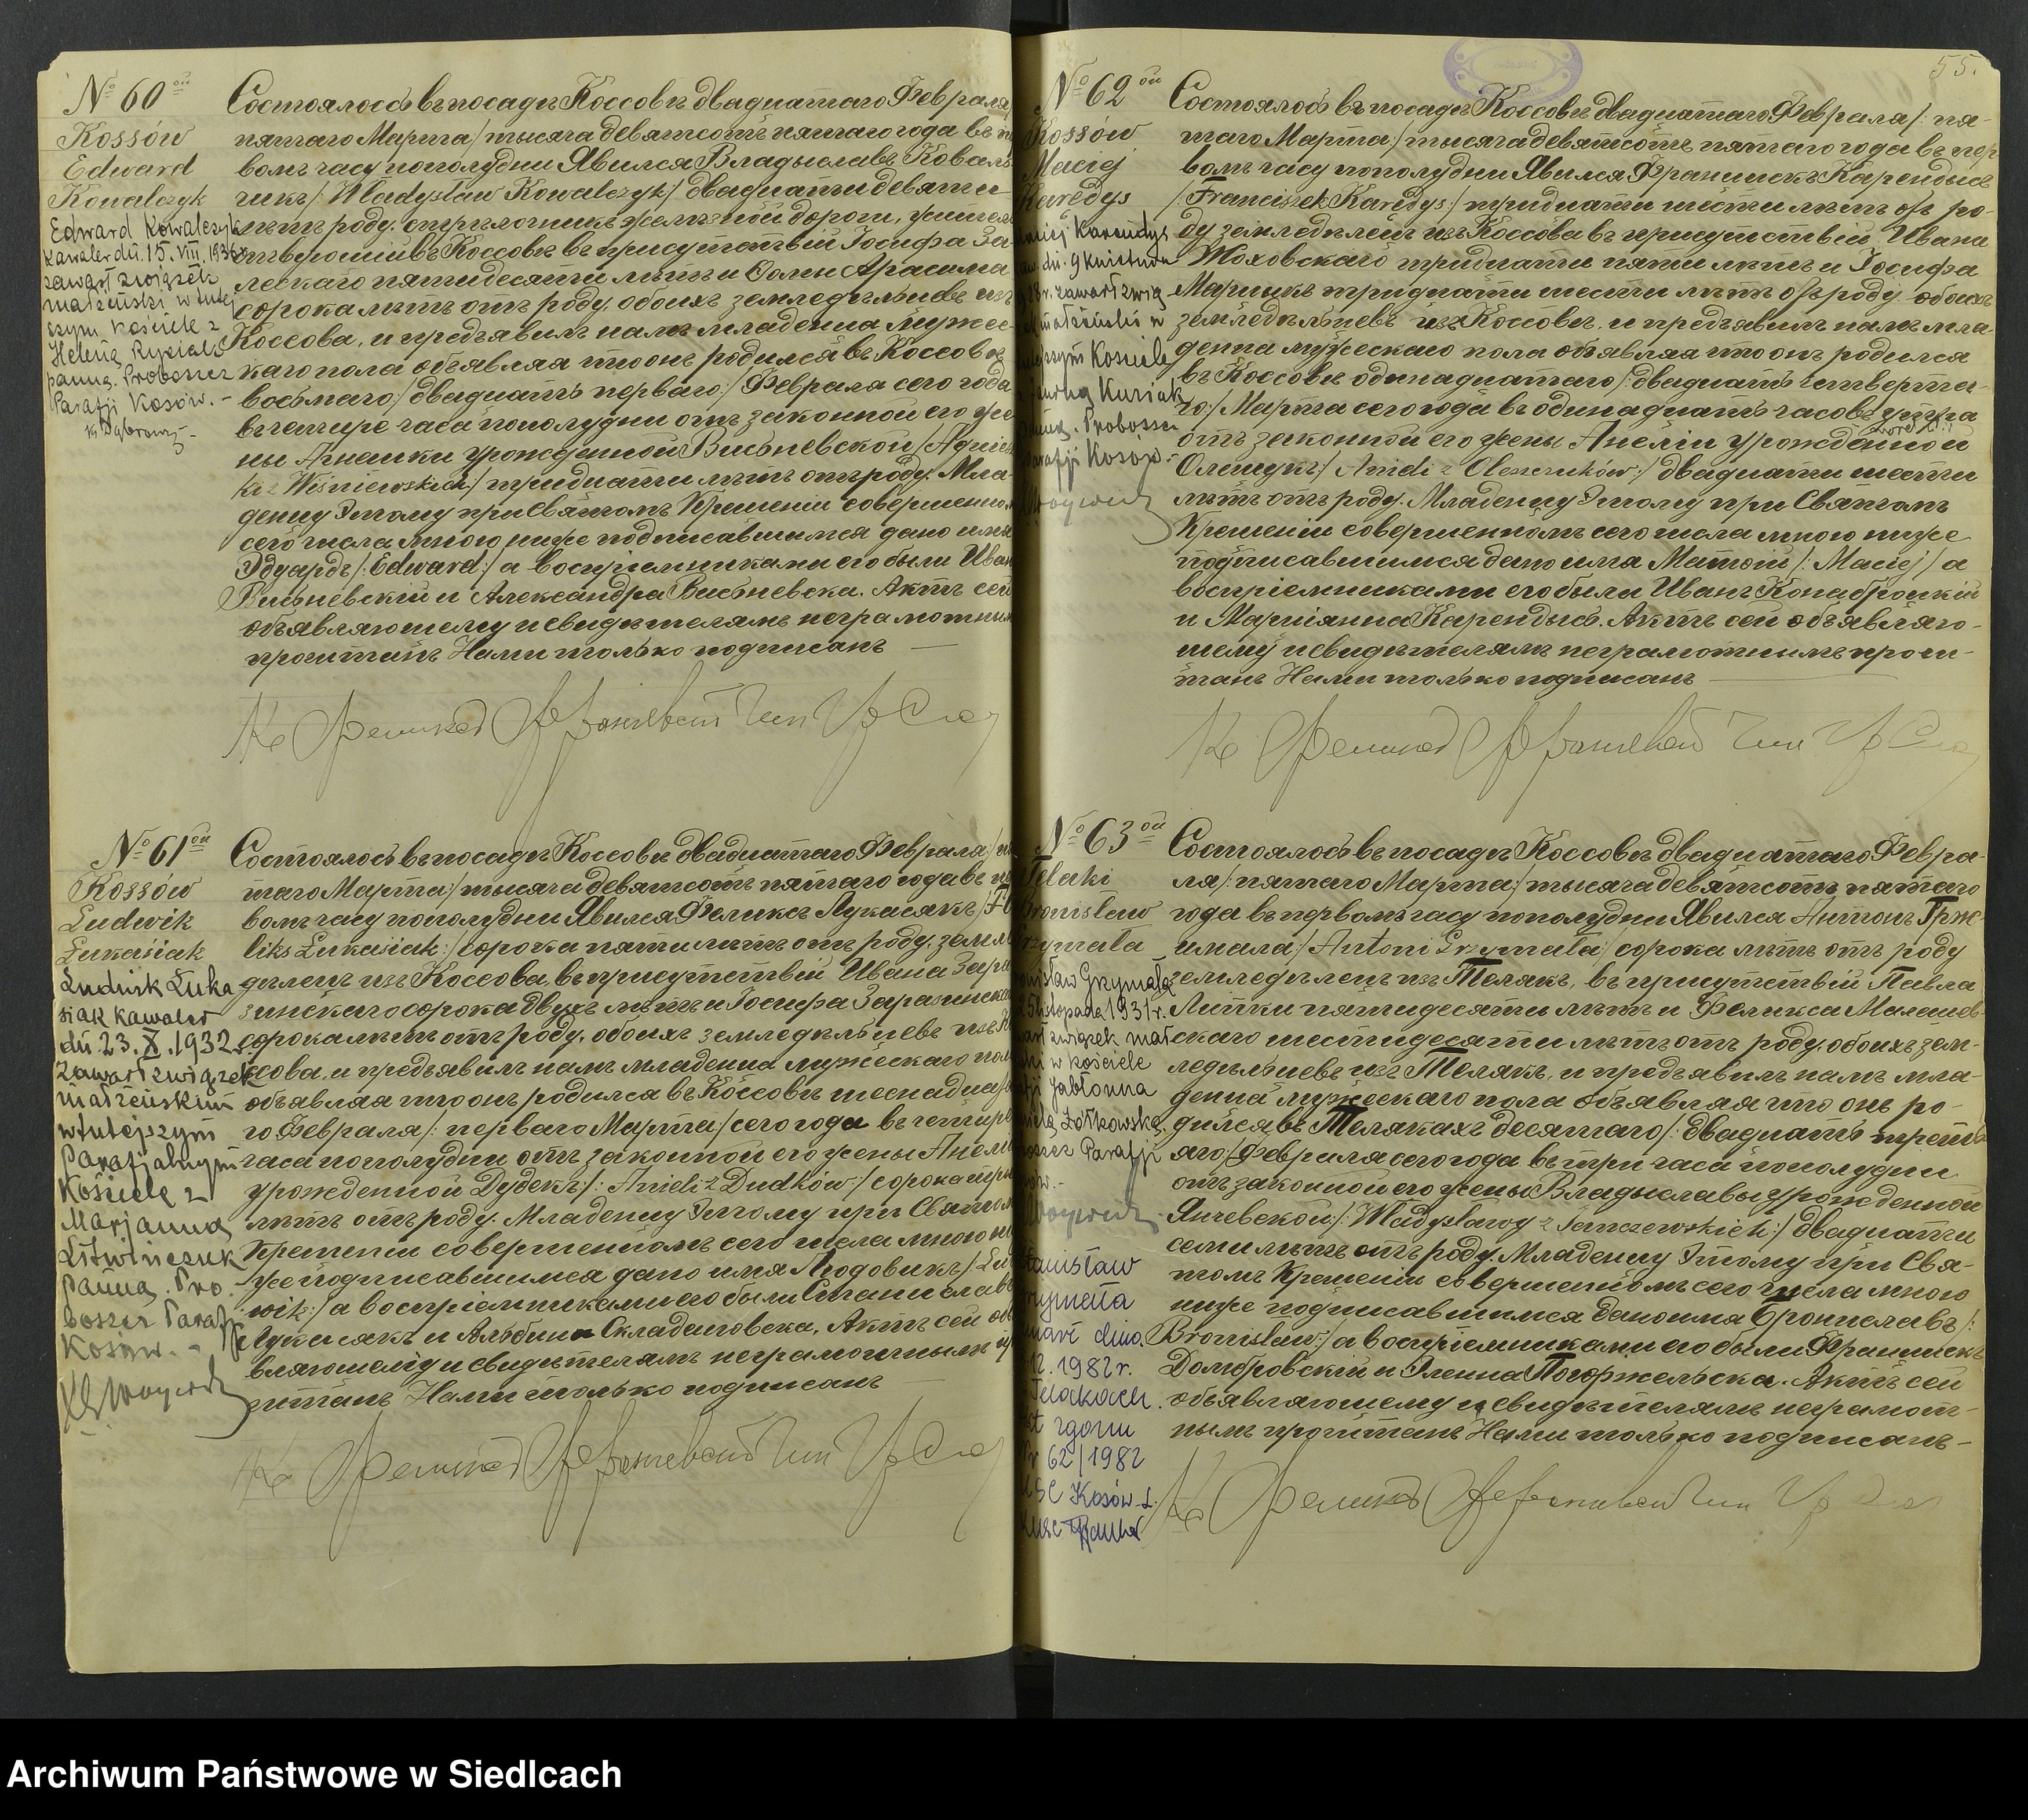 № 60ой
Kossów
Edward
Kowalczyk
Edward Kowalczyk
kawaler dń. 15.VIII.1936 r.
zawarł związek
małżeński w tutej
szym kościele z
Heleną
panną. Proboszcz
Parafji Kosów. -
Состоялось въ посадѣ Коссовѣ двадцатаго Февраля
пятаго Марта/ тысяча девятсотъ пятаго года въ
вомъ часу пополудни Явился Владыславъ Коваль
чикъ/: Władysław Kowalczyk/ двадцати девяти
лѣтъ роду, стрѣлочникъ желѣзной дороги, жител
въ Коссовѣ въ присутствіи Іосифа За
лескаго пятидесяти лѣтъ и
сорока лѣтъ отъ роду, обоихъ земледѣльцевъ изъ
Коссова, и предъявилъ намъ младенца мужес-
каго пола объявляя что онъ родился въ Коссовѣ
восьмаго/ двадцать перваго:/ Февраля сего года
въ четыре часа пополудни отъ законной его же
ны Агнешки урожденной Висьневской/ Agniesz
ki z Wiśniewskich:/ тридцати лѣтъ отъ роду. Мла-
денцу этому при Святомъ Крещеніи совершенном
сего числа мною ниже подписавшимся дано имя
Эдуардъ/: Edward:/ а воспріемниками его были Иван
Висьневскій и Александра Висьневска. Актъ сей
объявляющему и свидѣтелямъ неграмотным
прочитанъ Нами только подписанъ —
№ 61ой
Kossów
Ludwik
Łukasiak
Ludwik Łuka
siak kawaler
dń. 23. X. 1932 r.
zawarł związek
małżeński
w tutejszym
Parafjalnym
Kościele z
Marjanną
Litwińczuk
Panną. Pro.
boszcz Parafji
Kosów. -
Состоялось въ посадѣ Коссовѣ двадцатаго Февраля/ пя
таго Марта:/ тысяча девятсотъ пятаго года въ пер
вомъ часу пополудни Явился Феликсъ Лукасякъ/ Fe
liks Łukasiak:/ сорока пяти лѣтъ отъ роду, земле
дѣлецъ изъ Коссова, въ присутствіи Ивана Зара
зинскаго сорока двухъ лѣтъ и Іосифа Заразинскаго
сорока лѣтъ отъ роду, обоихъ земледѣльцевъ изъ К
ссова, и предъявилъ намъ младенца мужескаго пола
объявляя что онъ родился въ Коссовѣ шеснадцата
го Февраля/: перваго Марта/ сего года въ четыре
часа пополудни отъ законной его жены Анели
урожденной Дудекъ:/: Anieli z Dudków:/ сорока три
лѣтъ отъ роду. Младенцу этому при Святом
Крещеніи совершенномъ сего числа мною ни
же подписавшимся дано имя Людовикъ/ Lud
wik:/ а воспріемниками его были Станиславъ
Лукасякъ и Альбина Складановска. Актъ сей объ
вляющему и свидѣтелямъ неграмотнымъ про
читанъ Нами только подписанъ —
55.
№ 62ой
Kossów
Maciej
Karędys
Maciej Karendys
dń. 9 kwietnia
28 r. zawarł zwią
małżeński w
tejszym Kościele
Kursak
panną. Proboszcz
Parafji Kosów. -
Состоялось въ посадѣ Коссовѣ двадцатаго Февраля/: пя-
таго Марта:/ тысяча девятсотъ пятаго года въ пер
вомъ часу пополудни Явился Францишекъ Карендысъ
/: Franciszek Karędys:/ тридцати шести лѣтъ отъ ро-
ду земледѣлецъ изъ Коссова въ присутствіи Ивана
Жоховскаго тридцати пяти лѣтъ и Іосифа
тридцати шести лѣтъ отъ роду обоихъ
земледѣльцевъ изъ Коссова, и предъявилъ намъ мла
денца мужескаго пола объявляя что онъ родился
въ Коссовѣ одинадцатаго/: двадцать четверта-
го:/ Марта сего года въ одинадцать часовъ утра
отъ законной его жены Анеліи урожденной
Олещукъ:/ Anieli z Oleszczuków:/ двадцати шести
лѣтъ отъ роду. Младенцу этому при Святомъ
Крещеніи совершенномъ сего числа мною ниже
подписавшимся дано имя Матвій/: Maciej/ а
воспріемниками его были Иванъ Конабродскій
и Маріанна Карендысь. Актъ сей объявляю-
щему и свидѣтелямъ неграмотнымъ прочи-
танъ Нами только подписанъ —
№ 63ой
Telaki
Bronisław
Grzymała
nisław Grzymała
25 listopada 1931 r.
arł związek mał
ski w kościele
fji Jabłonna
Żółkowską.
boszcz Parafji
sów. -
Stanisław
Grzymała
zmarł dnia
12. 1982 r.
Telakach.
akt zgonu
Nr 62/1982
USC Kosów L.
Состоялось въ посадѣ Коссовѣ двадцатаго Февра-
ля/: пятаго Марта:/ тысяча девятсотъ пятаго
года въ первомъ часу пополудни Явился Антонъ Грж-
имала:/ Antoni Grzymała:/ сорока лѣтъ отъ роду
земледѣлецъ изъ Телякъ, въ присутствіи Павла
Литки пятидесяти лѣтъ и Феликса Малашев-
скаго шестидесяти лѣтъ отъ роду, обоихъ зем-
ледѣльцевъ изъ Телякъ, и предъявилъ намъ мла-
денца мужескаго пола объявляя что онъ ро-
дился въ Телякахъ десятаго/: двадцать треть-
яго:/ Февраля сего года въ три часа пополудни
отъ законной его жены Владыславы урожденной
Янчевской:/: Władysławy z Janczewskich:/ двадцати
семи лѣтъ отъ роду. Младенцу этому при Свя-
томъ Крещеніи совершенномъ сего числа мною
ниже подписавшимся дано имя Брониславъ/:
Bronisław:/ а воспріемниками его были Францишекъ
Домбровскій и Гленна Погоржельска. Актъ сей
объявляющему и свидѣтелямъ неграмот-
нымъ прочитанъ Нами только подписанъ —
Archiwum Państwowe w Siedlcach